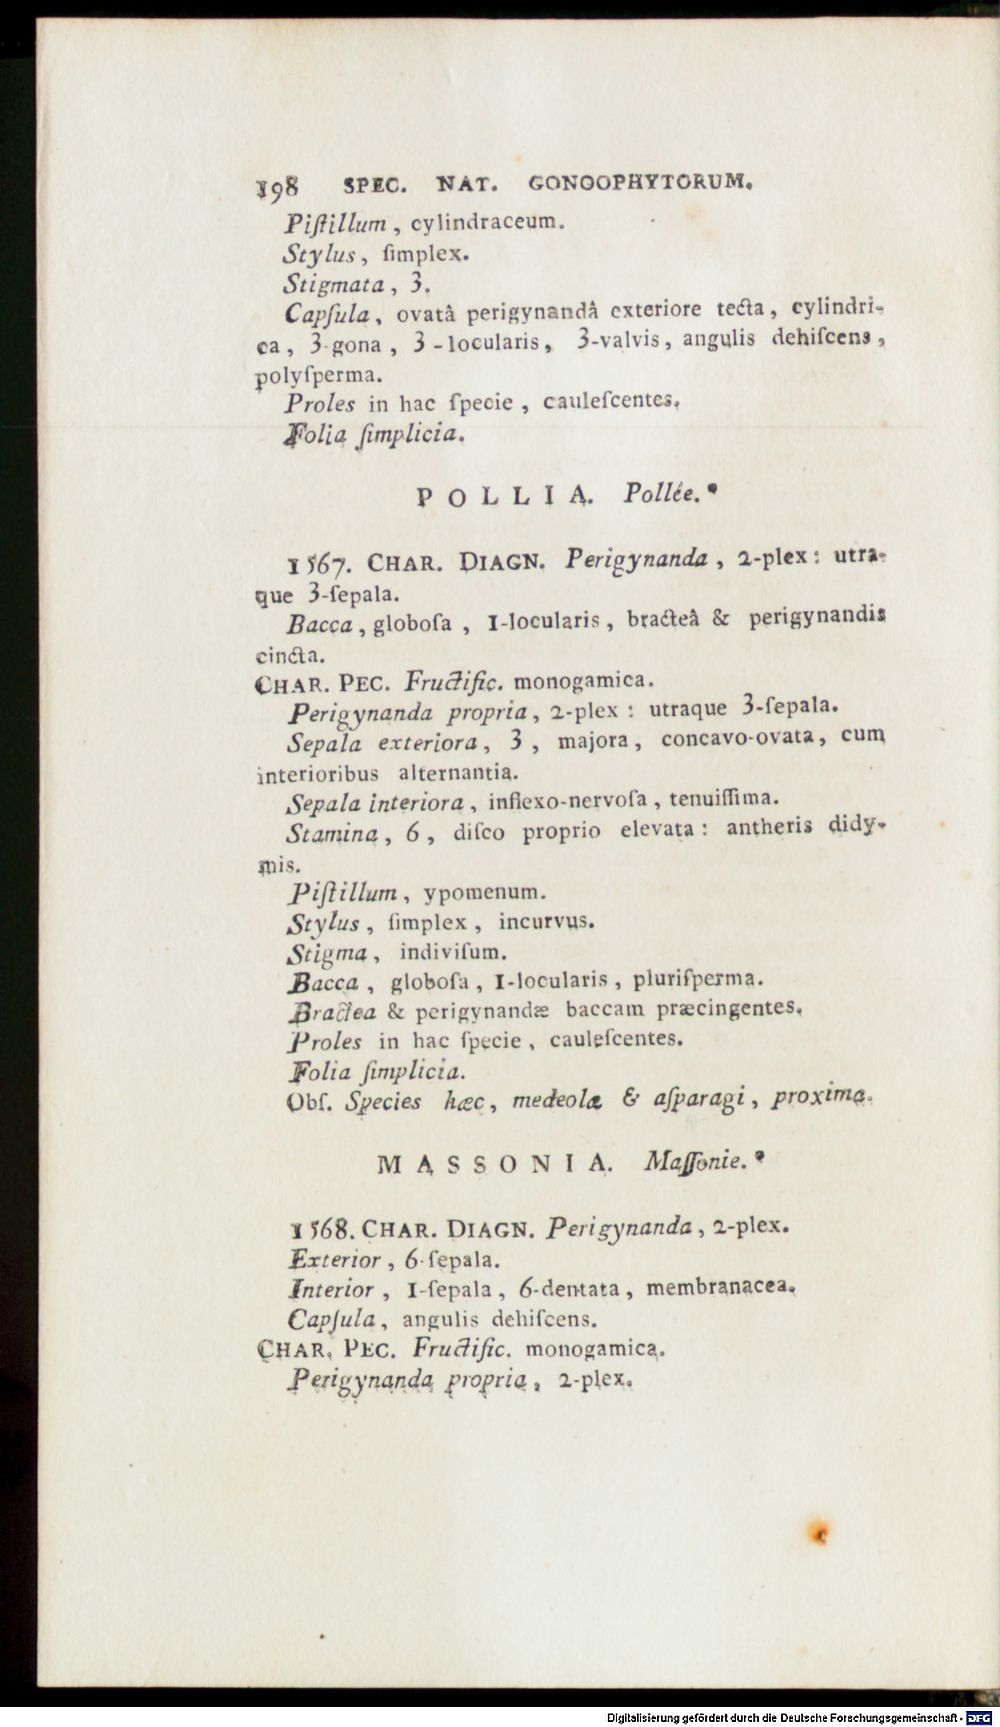 198 SPEC. NAT. GONOOPHYTORUM.
Piſtillum, cylindraceum.
Stylus, ſimplex.
Stigmata, 3.
Capſula, ovatâ perigynandâ exteriore tecta, cylindri-
ca, 3-gona, 3-locularis, 3-valvis, angulis dehiſcens,
polyſperma.
Proles in hac ſpecie, cauleſcentes.
Folia ſimplicia.
POLLIA. Pollée.*
1567. CHAR. DIAGN. Perigynanda, 2-plex: utra-
que 3-ſepala.
Bacca, globoſa, 1-locularis, bracteâ & perigynandis
cincta.
CHAR. PEC. Fructific. monogamica.
Perigynanda propria, 2-plex: utraque 3-ſepala.
Sepala exteriora, 3, majora, concavo-ovata, cum
interioribus alternantia.
Sepala interiora, inflexo-nervoſa, tenuiſſima.
Stamina, 6, diſco proprio elevata: antheris didy-
mis.
Piſtillum, ypomenum.
Stylus, ſimplex, incurvus.
Stigma, indiviſum.
Bacca, globoſa, 1-locularis, pluriſperma.
Bractea & perigynandæ baccam præcingentes.
Proles in hac ſpecie, cauleſcentes.
Folia ſimplicia.
Obſ. Species hæc, medeolæ & aſparagi, proxima.
MASSONIA. Maſſonie.*
1568. CHAR. DIAGN. Perigynanda, 2-plex.
Exterior, 6-ſepala.
Interior, 1-ſepala, 6-dentata, membranacea.
Capſula, angulis dehiſcens.
CHAR. PEC. Fructific. monogamica.
Perigynanda propria, 2-plex.
Digitalisierung gefördert durch die Deutsche Forschungsgemeinschaft - DFG